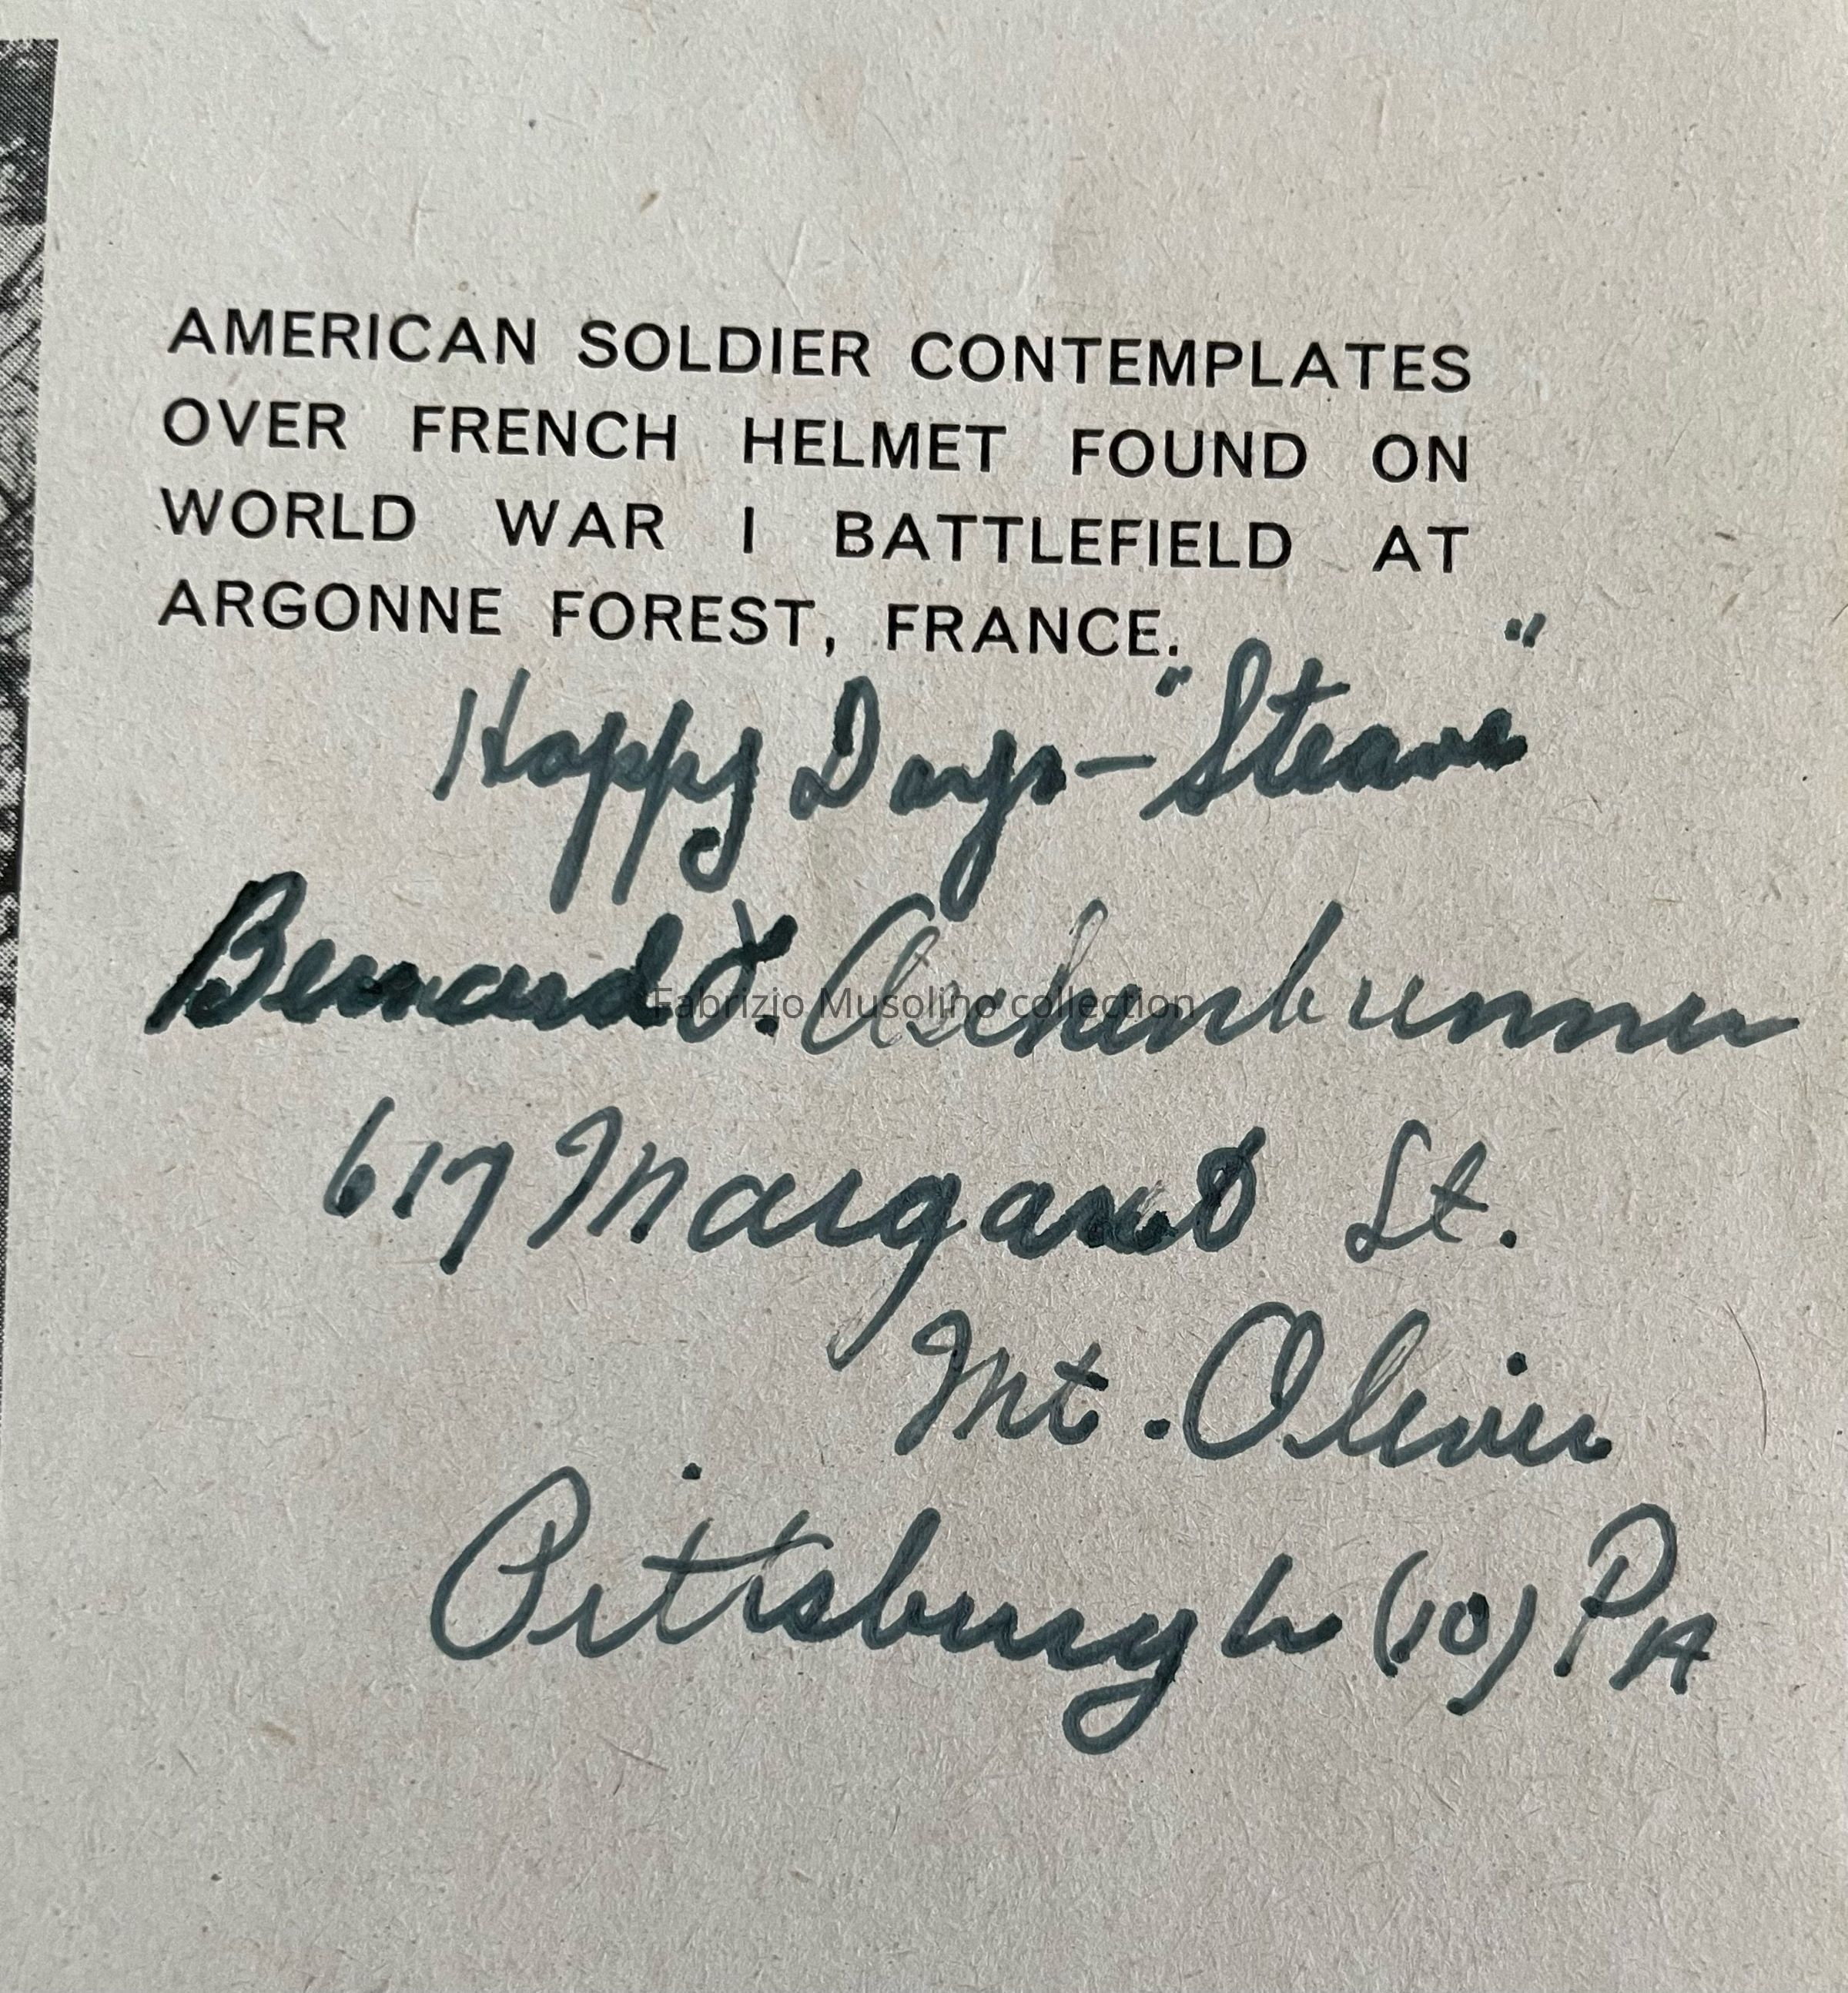 AMERICAN SOLDIER CONTEMPLATES
OVER FRENCH HELMET FOUND ON
WORLD WAR I BATTLEFIELD AT
ARGONNE FOREST, FRANCE.
Happy Days -
Bernard J. Aschenbrenner
617 Margaret St.
Mt. Oliver
Pittsburgh (10) PA
Fabrizio Musolino collection